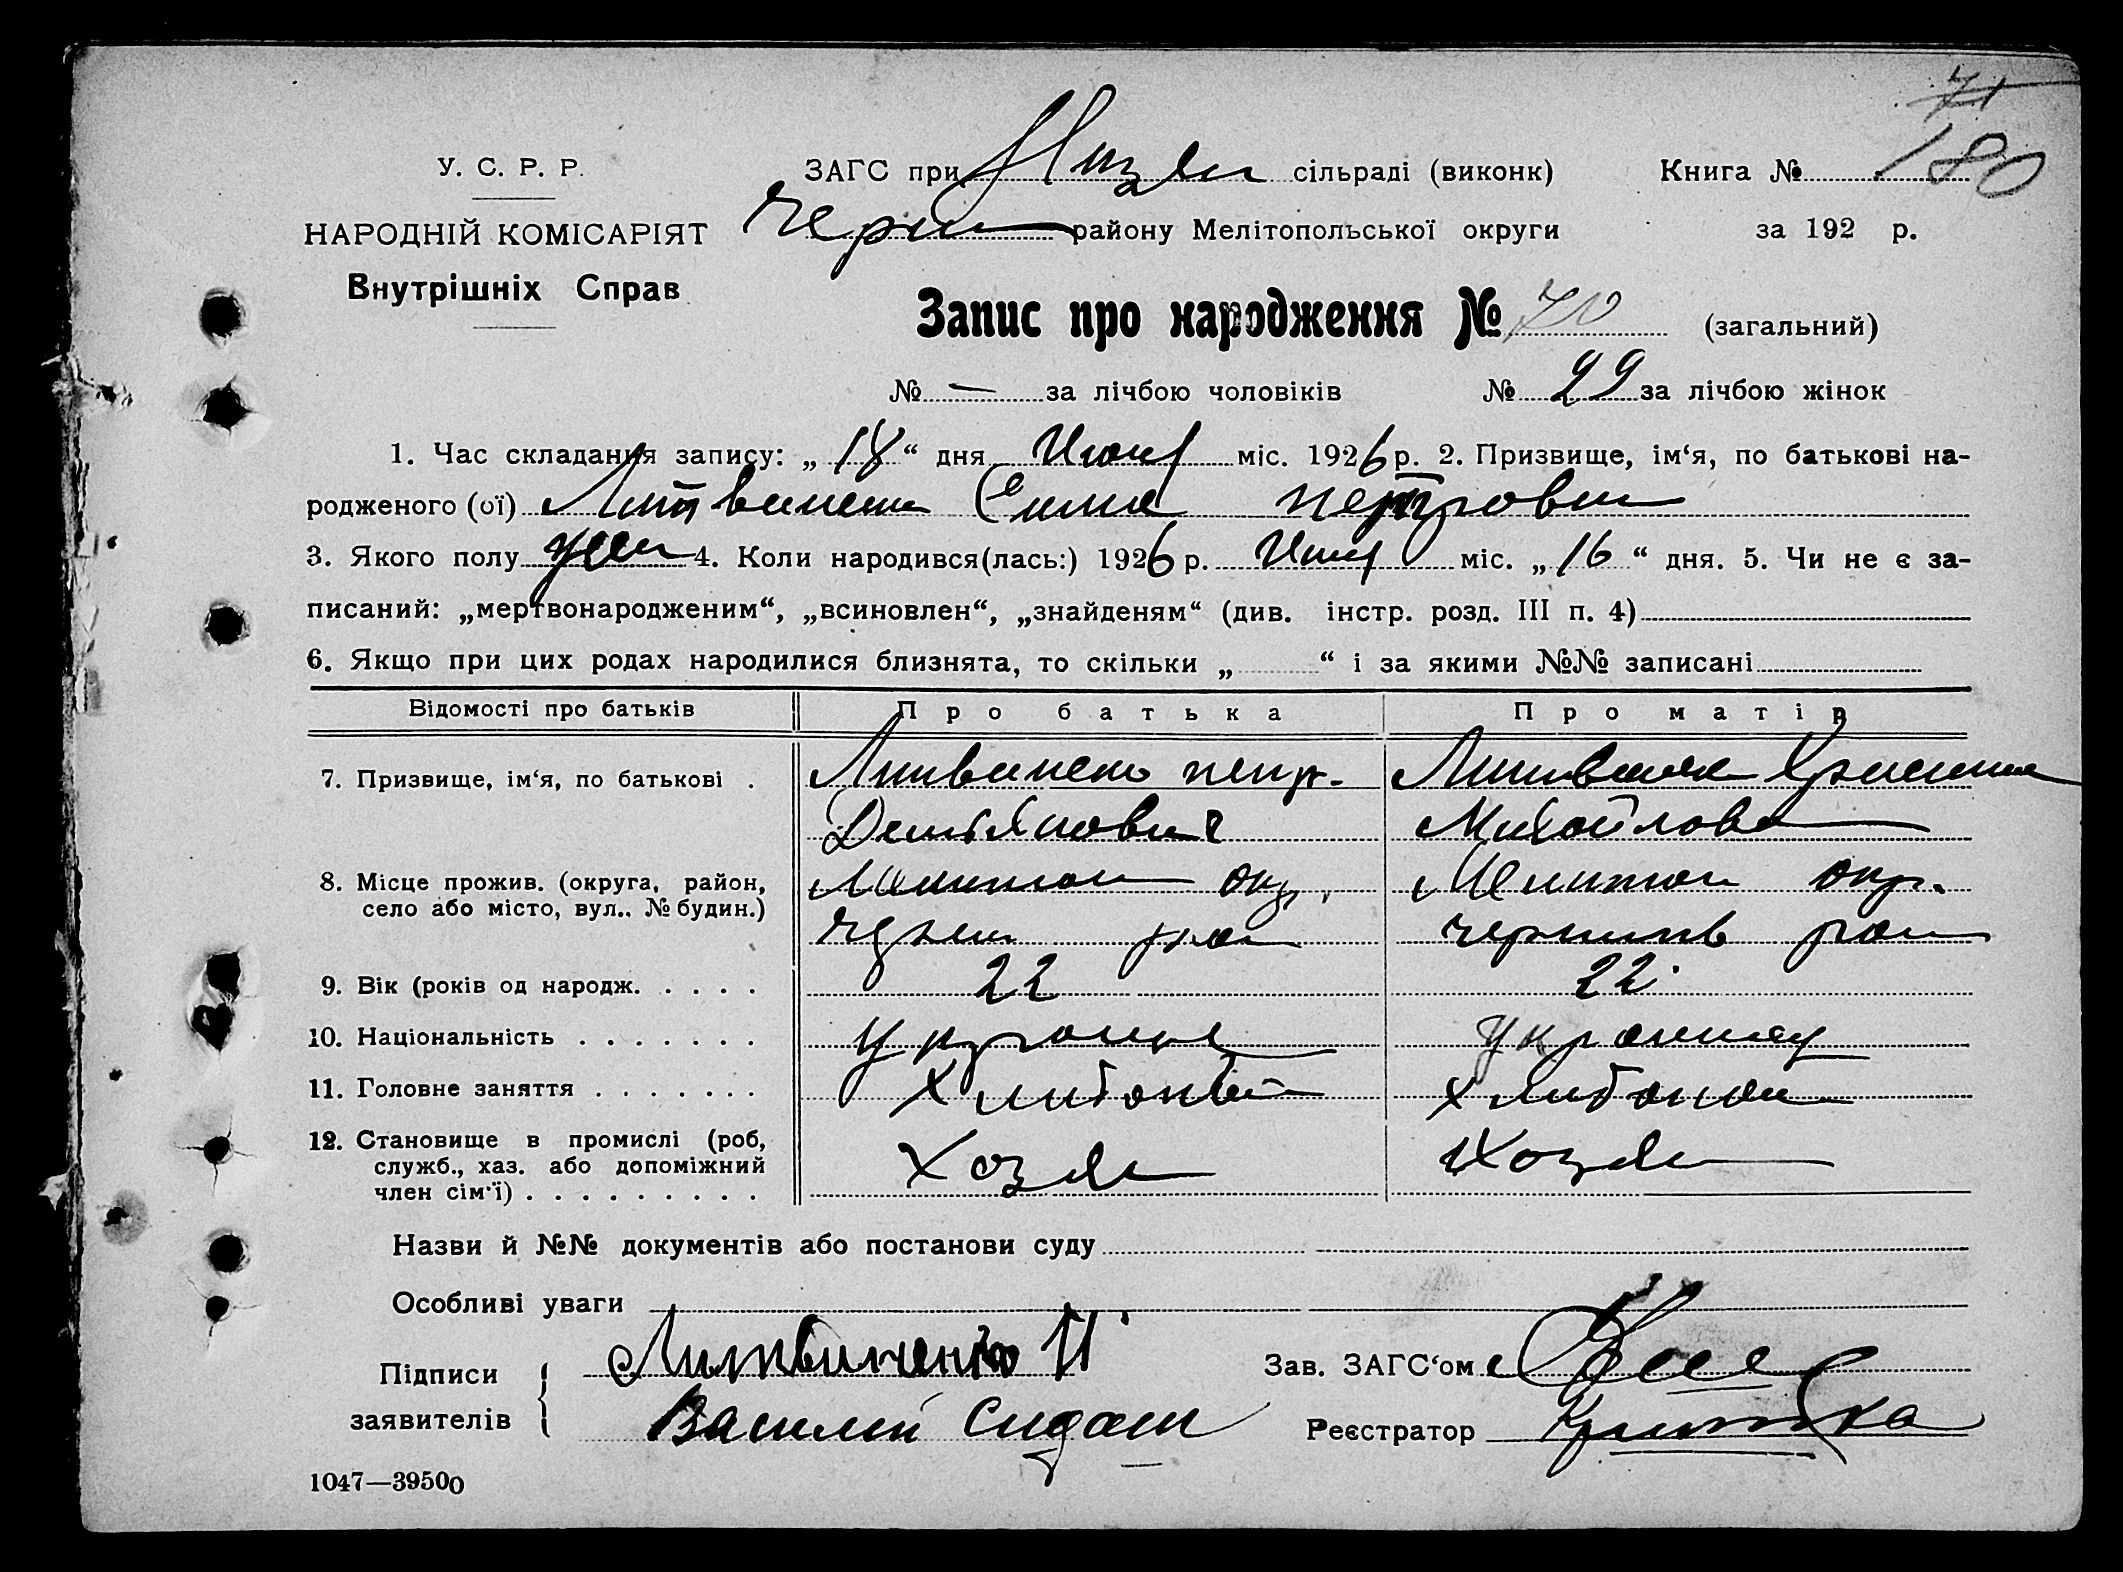 71
180
У. С. Р. Р.
ЗАГС при Низян сільраді (виконк)
Книга №
НАРОДНІЙ КОМІСАРІЯТ
Черни району Мелітопольської округи
за 192 р.
Внутрішніх Справ
Запис про народження № 70 (загальний)
№ — за лічбою чоловіків № 29 за лічбою жінок
1. Час складання запису: „ 18 “ дня Июня міс. 1926 р. 2. Призвище, ім‘я, по батькові на-
родженого (ої) Литвиненко Петровна
3. Якого полу жен 4. Коли народився(лась:) 1926 р. Июня міс. „ 16 “ дня. 5. Чи не є за-
писаний: „мертвонародженим“, „всиновлен“, „знайденям“ (див. інстр. розд. III п. 4)
6. Якщо при цих родах народилися близнята, то скільки „ “ і за якими №№ записані
Відомості про батьків Про батька Про матір
7. Призвище, ім‘я, по батькові . Литвиненко Петр. Литвиненко Християна
Демьянович Михайлова
8. Місце прожив. (округа, район, Мелитоп окр. Мелитоп окр.
село або місто, вул.. № будин.) Черни рай Чернигов рай
9. Вік (років од народж. . . . . 22 22
10. Національність . . . . . . . украинец украинец
11. Головне заняття . . . . . . . Хлибопаш хлибопаш
12. Становище в промислі (роб, Хозя Хозя
служб., хаз. або допоміжний
член сім‘ї) . . . . . . . . .
Назви й №№ документів або постанови суду
Особливі уваги
Підписи Литвиненко П Зав. ЗАГС‘ом
заявителів Василий Сидаш Реєстратор
1047—39500